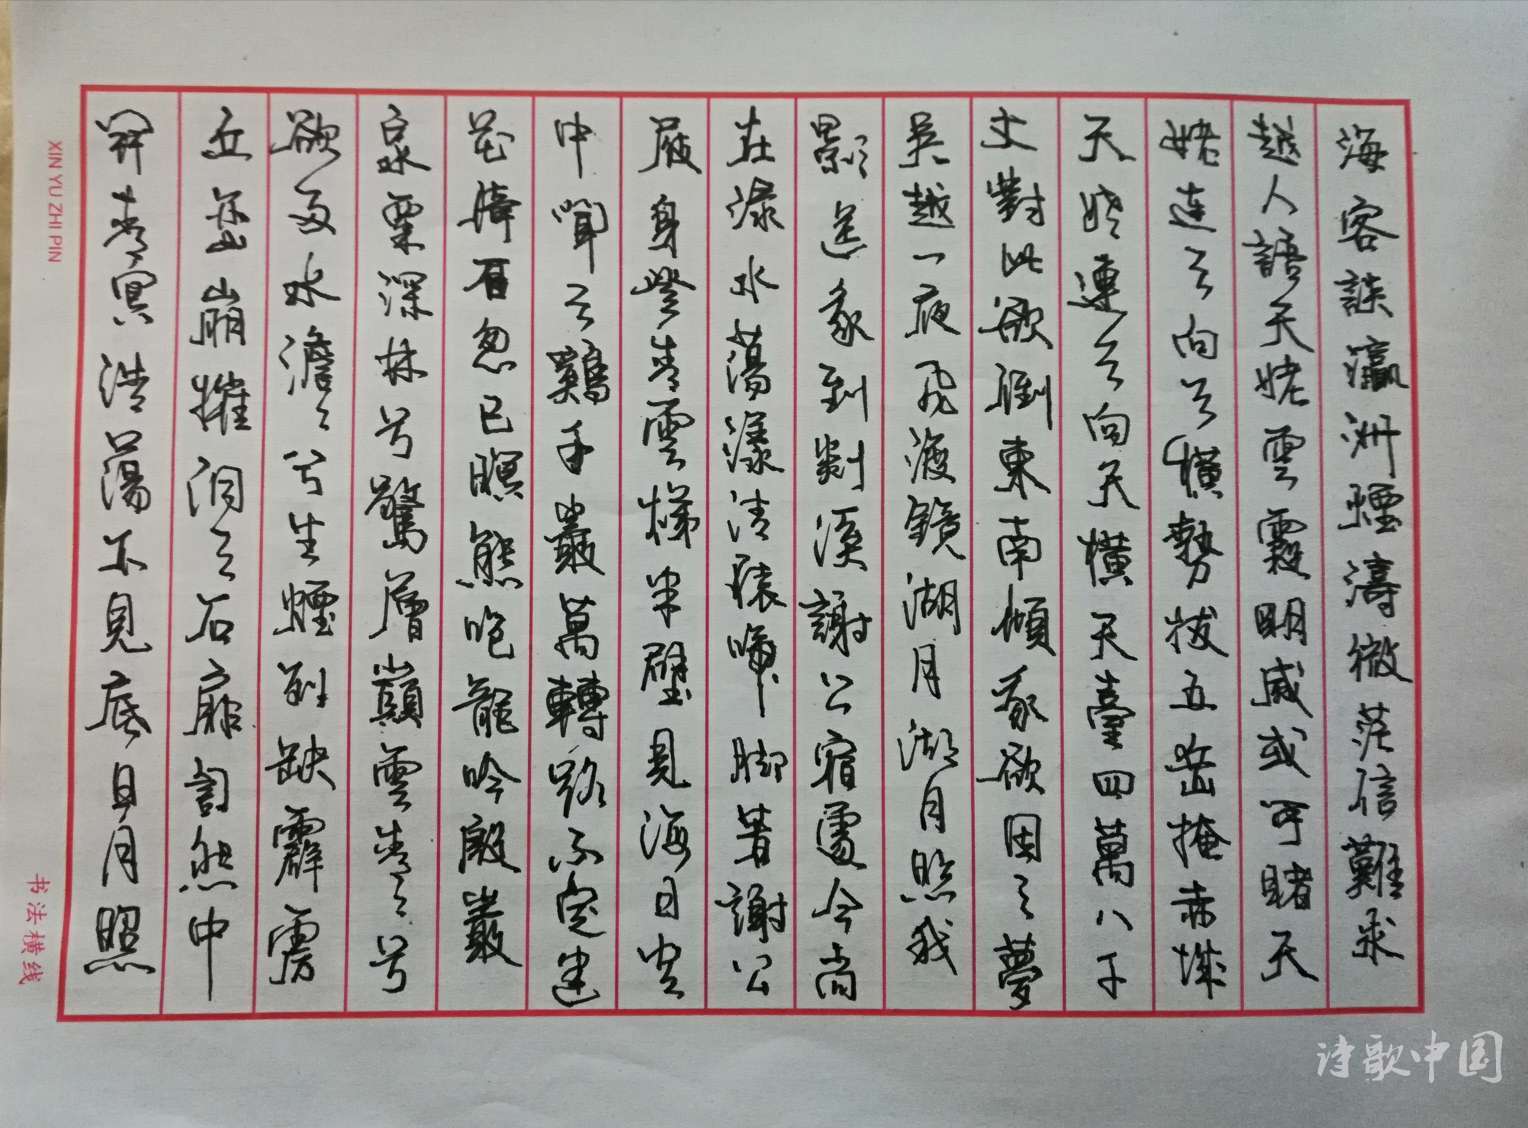 海客談瀛洲煙濤微茫信難求
越人語天姥雲霞明滅或可睹天
姥连云向云橫勢拔五岳掩赤城
天姥連云向天橫天臺四萬八千
丈對此欲倒東南傾我欲因之夢
吳越一夜飛渡鏡湖月湖月照我
影送我到剡溪謝公宿處今尚
在淥水蕩漾清猿啼脚著謝公
屐身登青雲梯半壁見海日空
中聞云鷄千巖萬轉路不定迷
花倚石忽已暝熊咆龍吟殷巖
泉栗深林兮驚層巔雲青々兮
欲雨水澹々兮生煙列缺霹靂
丘巒崩摧洞之石扉訇然中
開青冥浩蕩不見底日月照
XIN YU ZHI PIN
书法横线
诗歌中国